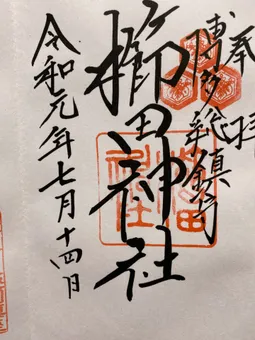 奉拝
博多総鎮守
櫛田神社
令和元年七月十四日